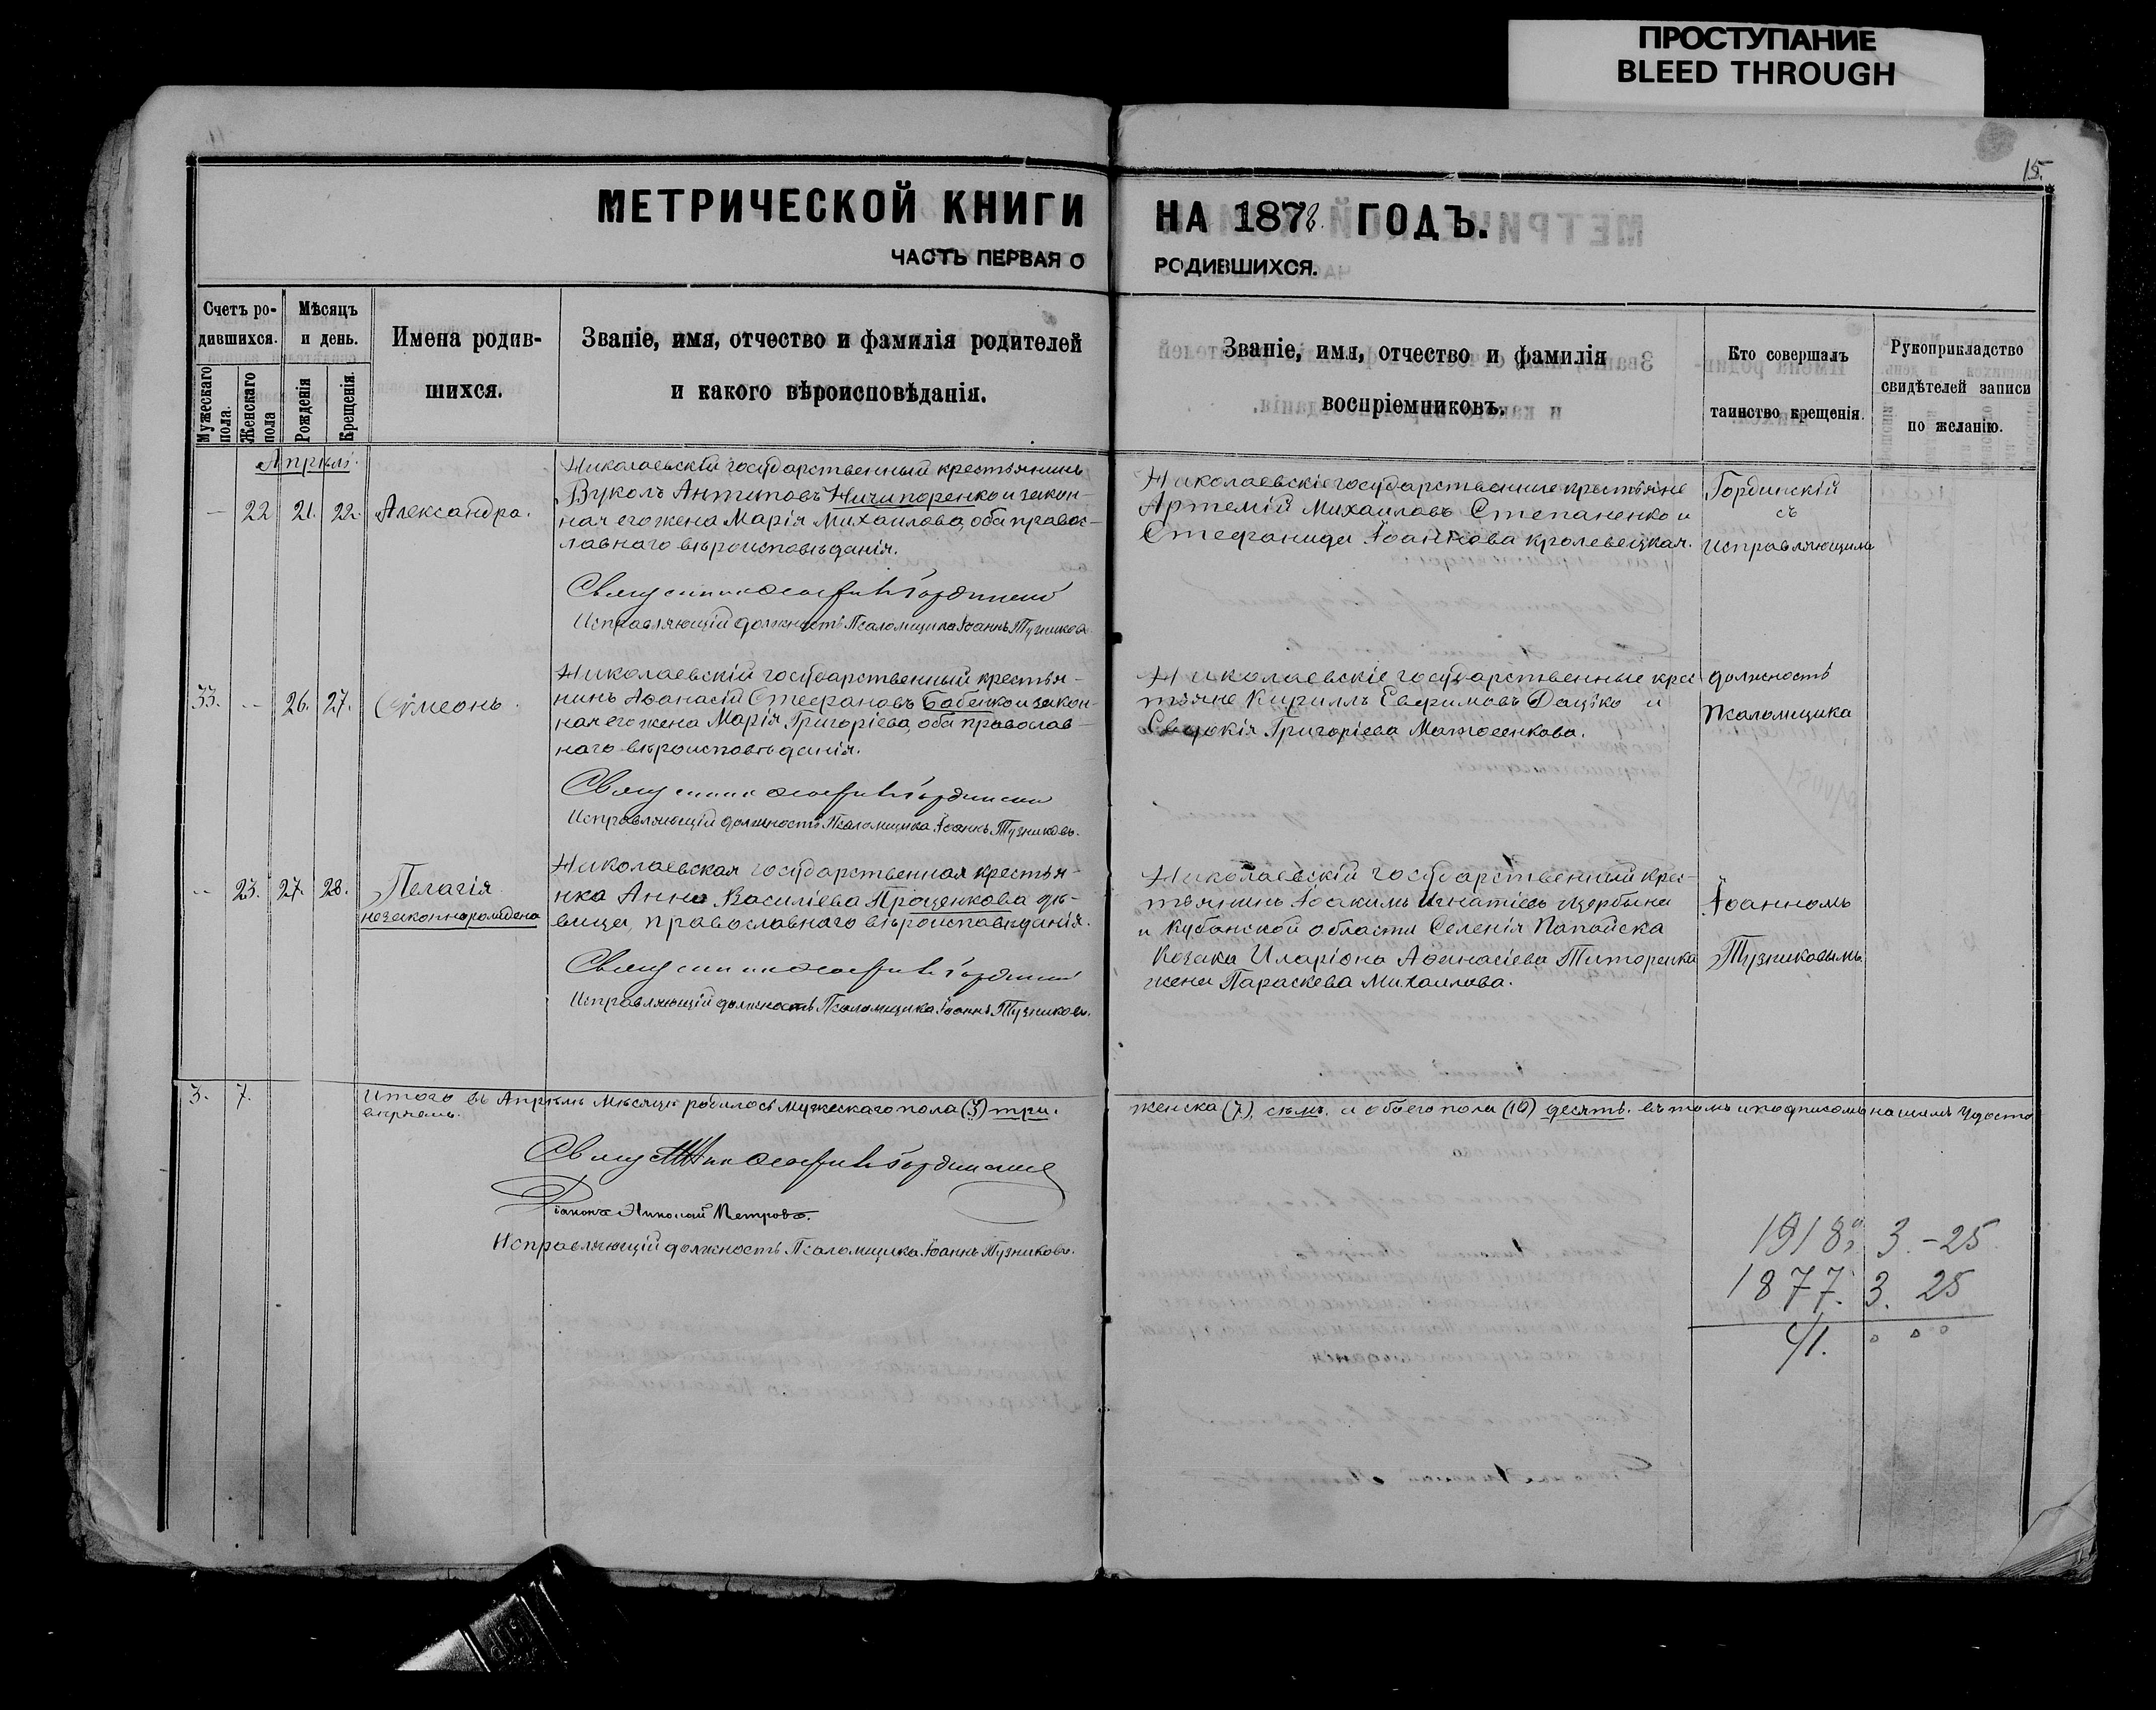 ПРОСТУПАНИЕ
BLEED THROUGH
15.
МЕТРИЧЕСКОЙ КНИГИ НА 1878. ГОДЪ.
ЧАСТЬ ПЕРВАЯ О РОДИВШИХСЯ.
Счетъ ро-
дившихся.
Мужескаго пола.
Женскаго пола
Мѣсяцъ
и день.
Рожденія
Крещенія.
Имена родив-
шихся.
Званіе, имя, отчество и фамилія родителей
и какого вѣроисповѣданія.
Званіе, имя, отчество и фамилія
воспріемниковъ.
Кто совершалъ
таинство крещенія.
Рукоприкладство
свидѣтелей записи
по желанію.
Апрѣль.
— 22 21. 22. Александра.
Николаевскій государственный крестьянинъ
Вуколъ Антиповъ Ничипоренко и закон-
ная его жена Марія Михаилова, оба правос-
лавнаго вѣроисповѣданія.
Николаевскіе государственные крестьяне
Артемій Михаиловъ Степаненко и
Стефанида Іоаннова Кролевецкая.
Гординскій
съ
Исправляющимъ
Священникъ Іосифъ Гординскій
Исправляющій должность Псаломщика Іоаннъ Тузниковъ.
33. -- 26. 27. Сѵмеонъ.
Николаевскій государственный крестья-
нинъ Аѳанасій Стефановъ Бабенко и закон-
ная его жена Марія Григоріева, оба православ-
наго вѣроисповѣданія.
Николаевскіе государственные крес-
тьяне Кириллъ Евфимовъ Дацько и
Евдокія Григоріева Матвеенкова.
должность
Псаломщика
Священникъ Іосифъ Гординскій
Исправляющій должность Псаломщика Іоаннъ Тузниковъ.
-- 23. 27. 28. Пелагія
незаконнорождена
Николаевская государственная крестья-
нка Анна Василіева Проценкова дѣ-
вица, православнаго вѣроисповѣданія.
Николаевскій государственный крес-
тьянинъ Іоакимъ Игнатіевъ Щербына
и Кубанской области Селенія Папайска
Козака Иларіона Аѳанасіева Титоренка
жена Параскева Михаилова.
Іоанномъ
Тузниковымъ
Священникъ Іосифъ Гординскій
Исправляющій должность Псаломщика Іоаннъ Тузниковъ.
3. 7. Итого въ Апрѣлѣ Мѣсяцѣ родилось мужескаго пола (3) три. женска (7), семь. и обоего пола (10) десять. въ томъ и подписомъ нашимъ удосто
вѣряемъ.
Священникъ Іосифъ Гординскій
Діаконъ Николай Петровъ.
Исправляющій должность Псаломщика Іоаннъ Тузниковъ.
1918. 3.-25
1877. 3. 25
41. 0 0 0